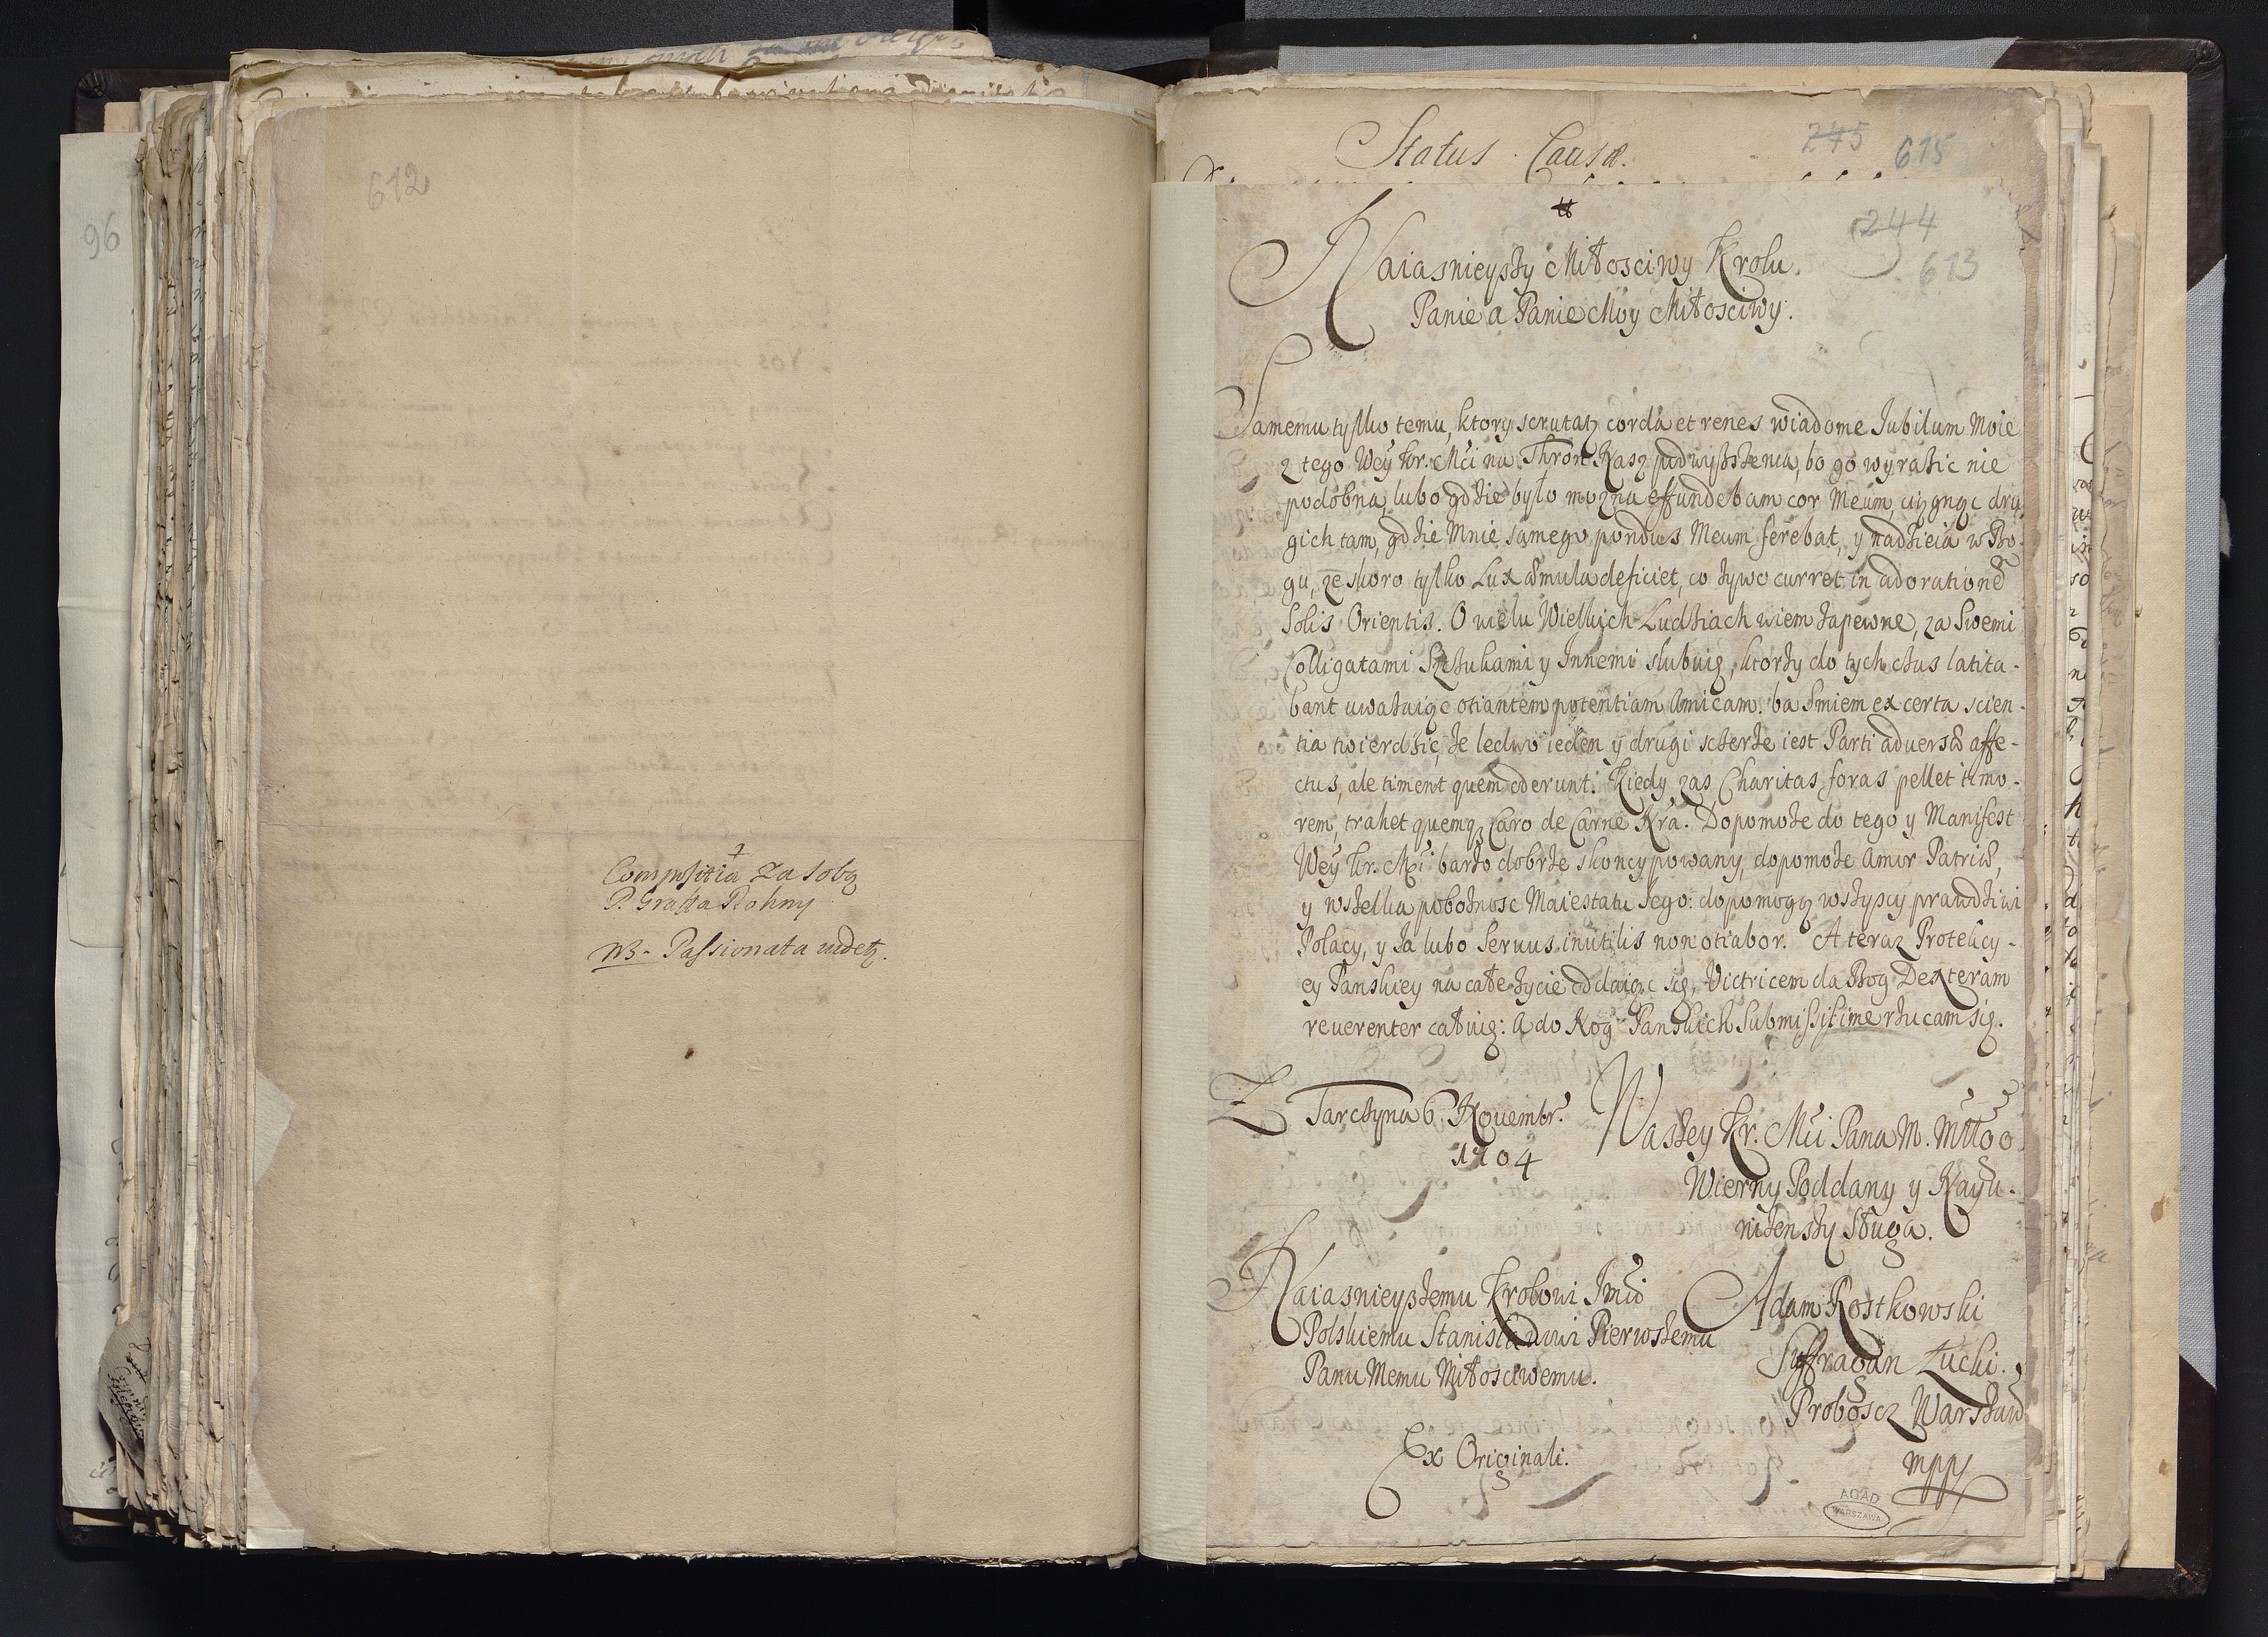 96
612
Compositia za sobą
P. Graffa Rohny
NB - Passionata
Status Causæ.
245 615
244
613
Naiasnieyszy Miłosciwy Krolu.
Panie a Panie Moy Miłosciwy.
Samemu tylko temu, ktory scrutatꝫ corda et renes wiadome Jubilum Moie
z tego Wey Kr. Mci na Thron Nasz podwyszszenia, bo go wyrazic nie
podobna, lubo gdzie było mozna effundebam cor Meum, ciągnąc dru
gich tam, gdzie Mnie samego pondus Meum ferebat, y nadzieia w Bo-
gu, ze skoro tylko Lux æmula deficiet, co zywo curret in adoratione
Solis Orientis. O wielu Wielkich Ludziach wiem zapewne, za Swemi
Colligatami Sztukami y Innemi slubuią, ktorzy do tych czas latita-
bant uwazaiąc otiantem potentiam Amicam. ba smiem ex certa scien-
tia twierdzic, ze ledwo ieden y drugi szczerze iest Parti adversæ affe-
ctus, ale timent quem oderunt. Kiedy zas Charitas foras pellet timo-
rem, trahet quemqꝫ Caro de Carne Nra. Dopomoze do tego y Manifest
Wey Kr. Mci barzo dobrze skoncypowany, dopomoze Amor Patriæ,
y wszelka pobożnosc Maiestatu Iego: dopomogą wszyscy prawdziwi
Polacy, y Ia lubo Servus inutilis non otiabor. A teraz Protekcy-
ey Panskiey na całe zycie oddaiąc się, Victricem da Bog Dexteram
reverenter całuię: a do Nog Panskich Submississime rzucam się.
Z Tarczyna 6. Novembr.
1704
Waszey Kr. Mci Pana M. Młgo
Wierny Poddany y Nayu-
nizenszy Sługa.
Naiasnieyszemu Krolowi Jmci
Polskiemu Stanisławowi Pierwszemu
Panu Memu Miłosciwemu.
Adam Rostkowski
Suffragan Łucki.
Proboscz Warszaw
mpp
Ex Originali.
AGAD
WARSZAWA